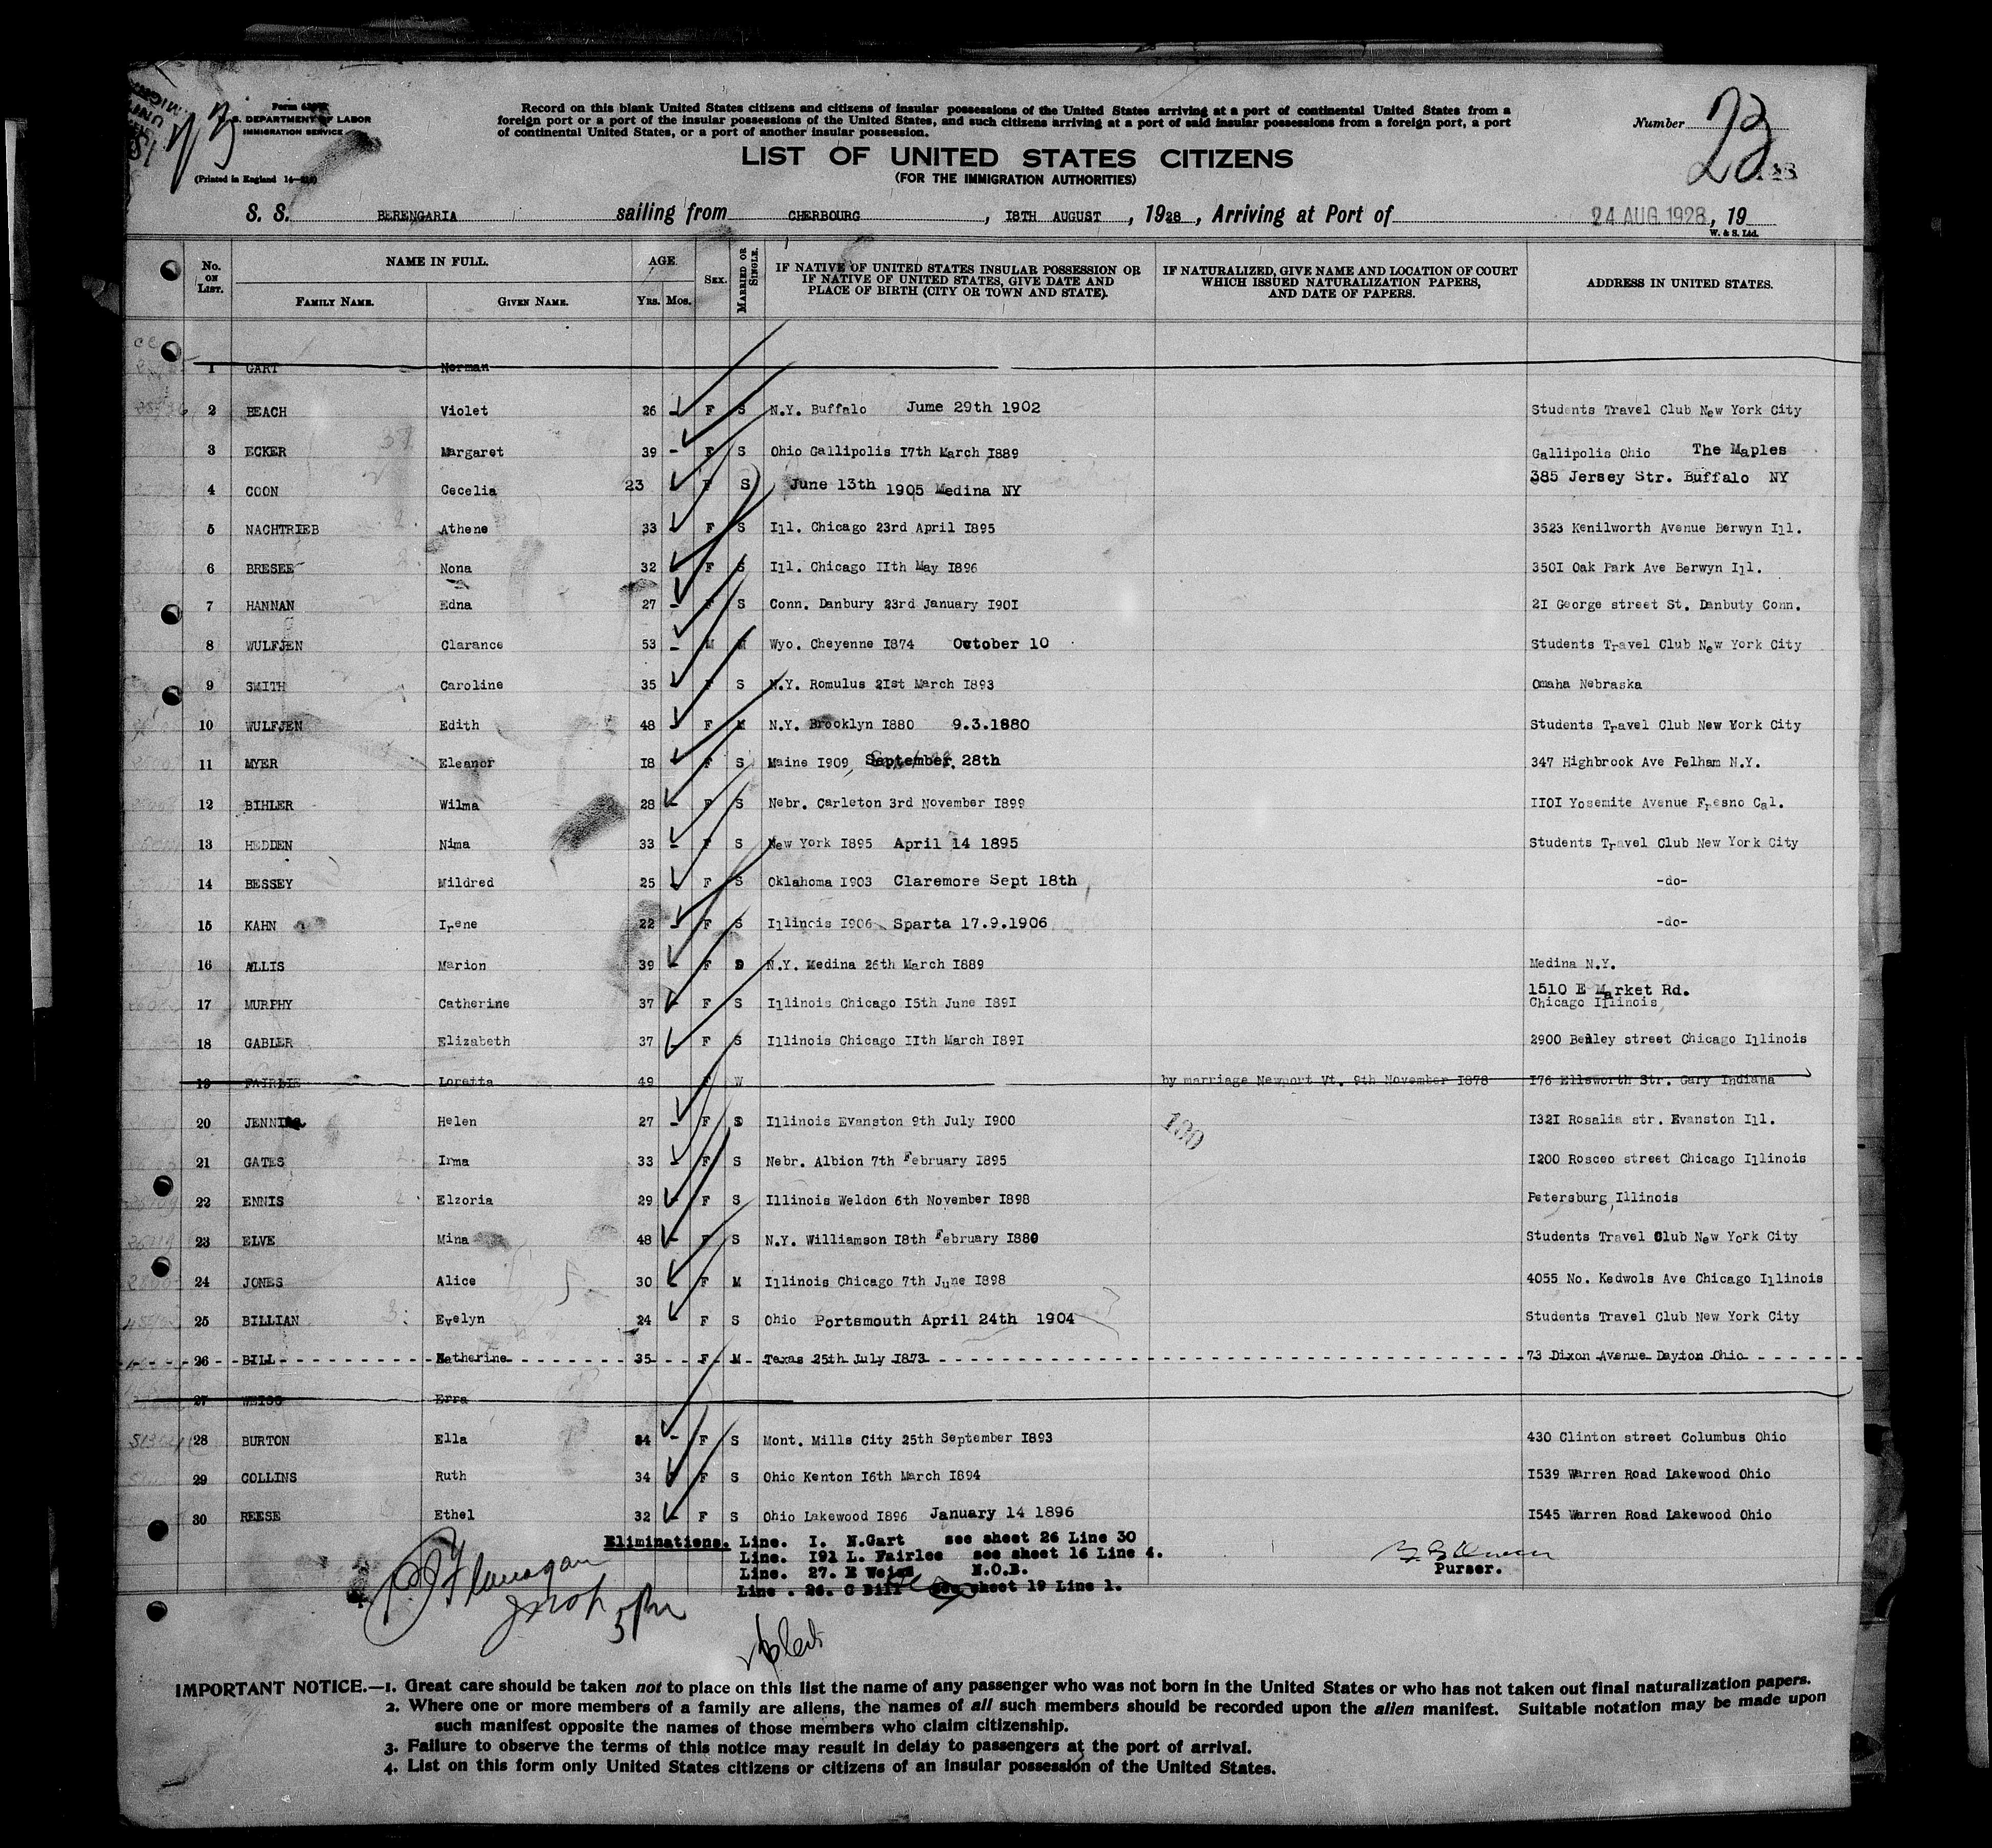 Form 630
U. S. DEPARTMENT OF LABOR
IMMIGRATION SERVICE
(Printed in England 14—)
Record on this blank United States citizens and citizens of insular possessions of the United States arriving at a port of continental United States from a
foreign port or a port of the insular possessions of the United States, and such citizens arriving at a port of said insular possessions from a foreign port, a port
of continental United States, or a port of another insular possession.
Number 23
LIST OF UNITED STATES CITIZENS
(FOR THE IMMIGRATION AUTHORITIES)
S. S. BERENGARIA sailing from CHERBOURG, I8TH AUGUST, 1928, Arriving at Port of 24 AUG 1928, 19
W. & S. Ltd.
No. ON LIST. NAME IN FULL. AGE. SEX. MARRIED OR SINGLE. IF NATIVE OF UNITED STATES INSULAR POSSESSION OR IF NATIVE OF UNITED STATES, GIVE DATE AND PLACE OF BIRTH (CITY OR TOWN AND STATE). IF NATURALIZED, GIVE NAME AND LOCATION OF COURT WHICH ISSUED NATURALIZATION PAPERS, AND DATE OF PAPERS. ADDRESS IN UNITED STATES.
FAMILY NAME. GIVEN NAME. YRS. MOS.
1 GART Norman
2 BEACH Violet 26 - F S N.Y. Buffalo Jume 29th 1902 Students Travel Club New York City
3 ECKER Margaret 39 - F S Ohio Gallipolis I7th March I889 Gallipolis Ohio The Maples
4 COON Cecelia 23 F S June 13th 1905 Medina NY 385 Jersey Str. Buffalo NY
5 NACHTRIEB Athene 33 - F S Ill. Chicago 23rd April I895 3523 Kenilworth Avenue Berwyn Ill.
6 BRESEE Nona 32 - F S Ill. Chicago IIth May I896 350I Oak Park Ave Berwyn Ill.
7 HANNAN Edna 27 - F S Conn. Danbury 23rd January I90I 2I George street St. Danbuty Conn.
8 WULFJEN Clarance 53 - M M Wyo. Cheyenne I874 October 10 Students Travel Club New York City
9 SMITH Caroline 35 - F S N.Y. Romulus 2Ist March I893 Omaha Nebraska
10 WULFJEN Edith 48 - F M N.Y. Brooklyn I880 9.3.1880 Students Travel Club New York City
11 MYER Eleanor I8 - F S Maine I909 September 28th 347 Highbrook Ave Pelham N.Y.
12 BIHLER Wilma 28 - F S Nebr. Carleton 3rd November I899 II0I Yosemite Avenue Fresno Cal.
13 HEDDEN Nima 33 - F S New York I895 April 14 1895 Students Travel Club New York City
14 BESSEY Mildred 25 - F S Oklahoma I903 Claremore Sept 18th -do-
15 KAHN Irene 22 - F S Illinois I906 Sparta 17.9.1906 -do-
16 ALLIS Marion 39 - F N.Y. Medina 26th March I889 Medina N.Y.
17 MURPHY Catherine 37 - F S Illinois Chicago I5th June I89I 1510 E Market Rd.
Chicago Illinois
18 GABLER Elizabeth 37 - F S Illinois Chicago IIth March I89I 2900 street Chicago Illinois
19 FAIRLIE Loretta 49 F W by marriage Newport Vt. 9th November I878 I76 Ellsworth Str. Gary Indiana
20 Helen 27 - F Illinois Evanston 9th July I900 I32I Rosalia str. Evanston Ill.
21 GATES Irma 33 - F S Nebr. Albion 7th February I895 I200 Rosceo street Chicago Illinois
22 ENNIS Elzoria 29 - F S Illinois Weldon 6th November I898 Petersburg Illinois
23 ELVE Mina 48 - F S N.Y. Williamson I8th February I880 Students Travel Club New York City
24 JONES Alice 30 - F M Illinois Chicago 7th June I898 4055 No. Kedwols Ave Chicago Illinois
25 BILLIAN Evelyn 24 - F S Ohio Portsmouth April 24th 1904 Students Travel Club New York City
26 BILL Katherine 35 F M Texas 25th July I873 73 Dixon Avenue Dayton Ohio
27 WEISS Erra
28 BURTON Ella 34 - F S Mont. Mills City 25th September I893 430 Clinton street Columbus Ohio
29 COLLINS Ruth 34 F S Ohio Kenton I6th March I894 I539 Warren Road Lakewood Ohio
30 REESE Ethel 32 - F S Ohio Lakewood I896 January 14 1896 I545 Warren Road Lakewood Ohio
Eliminations. Line. I. N.Gart see sheet 26 Line 30
Line. I9 L. Fairlee see sheet 16 Line 4.
Line. 27. E Weiss N.O.B.
Line. 26. C Bill see sheet 19 Line 1.
Purser.
Flanagan
IMPORTANT NOTICE.—1. Great care should be taken not to place on this list the name of any passenger who was not born in the United States or who has not taken out final naturalization papers.
2. Where one or more members of a family are aliens, the names of all such members should be recorded upon the alien manifest. Suitable notation may be made upon
such manifest opposite the names of those members who claim citizenship.
3. Failure to observe the terms of this notice may result in delay to passengers at the port of arrival.
4. List on this form only United States citizens or citizens of an insular possession of the United States.